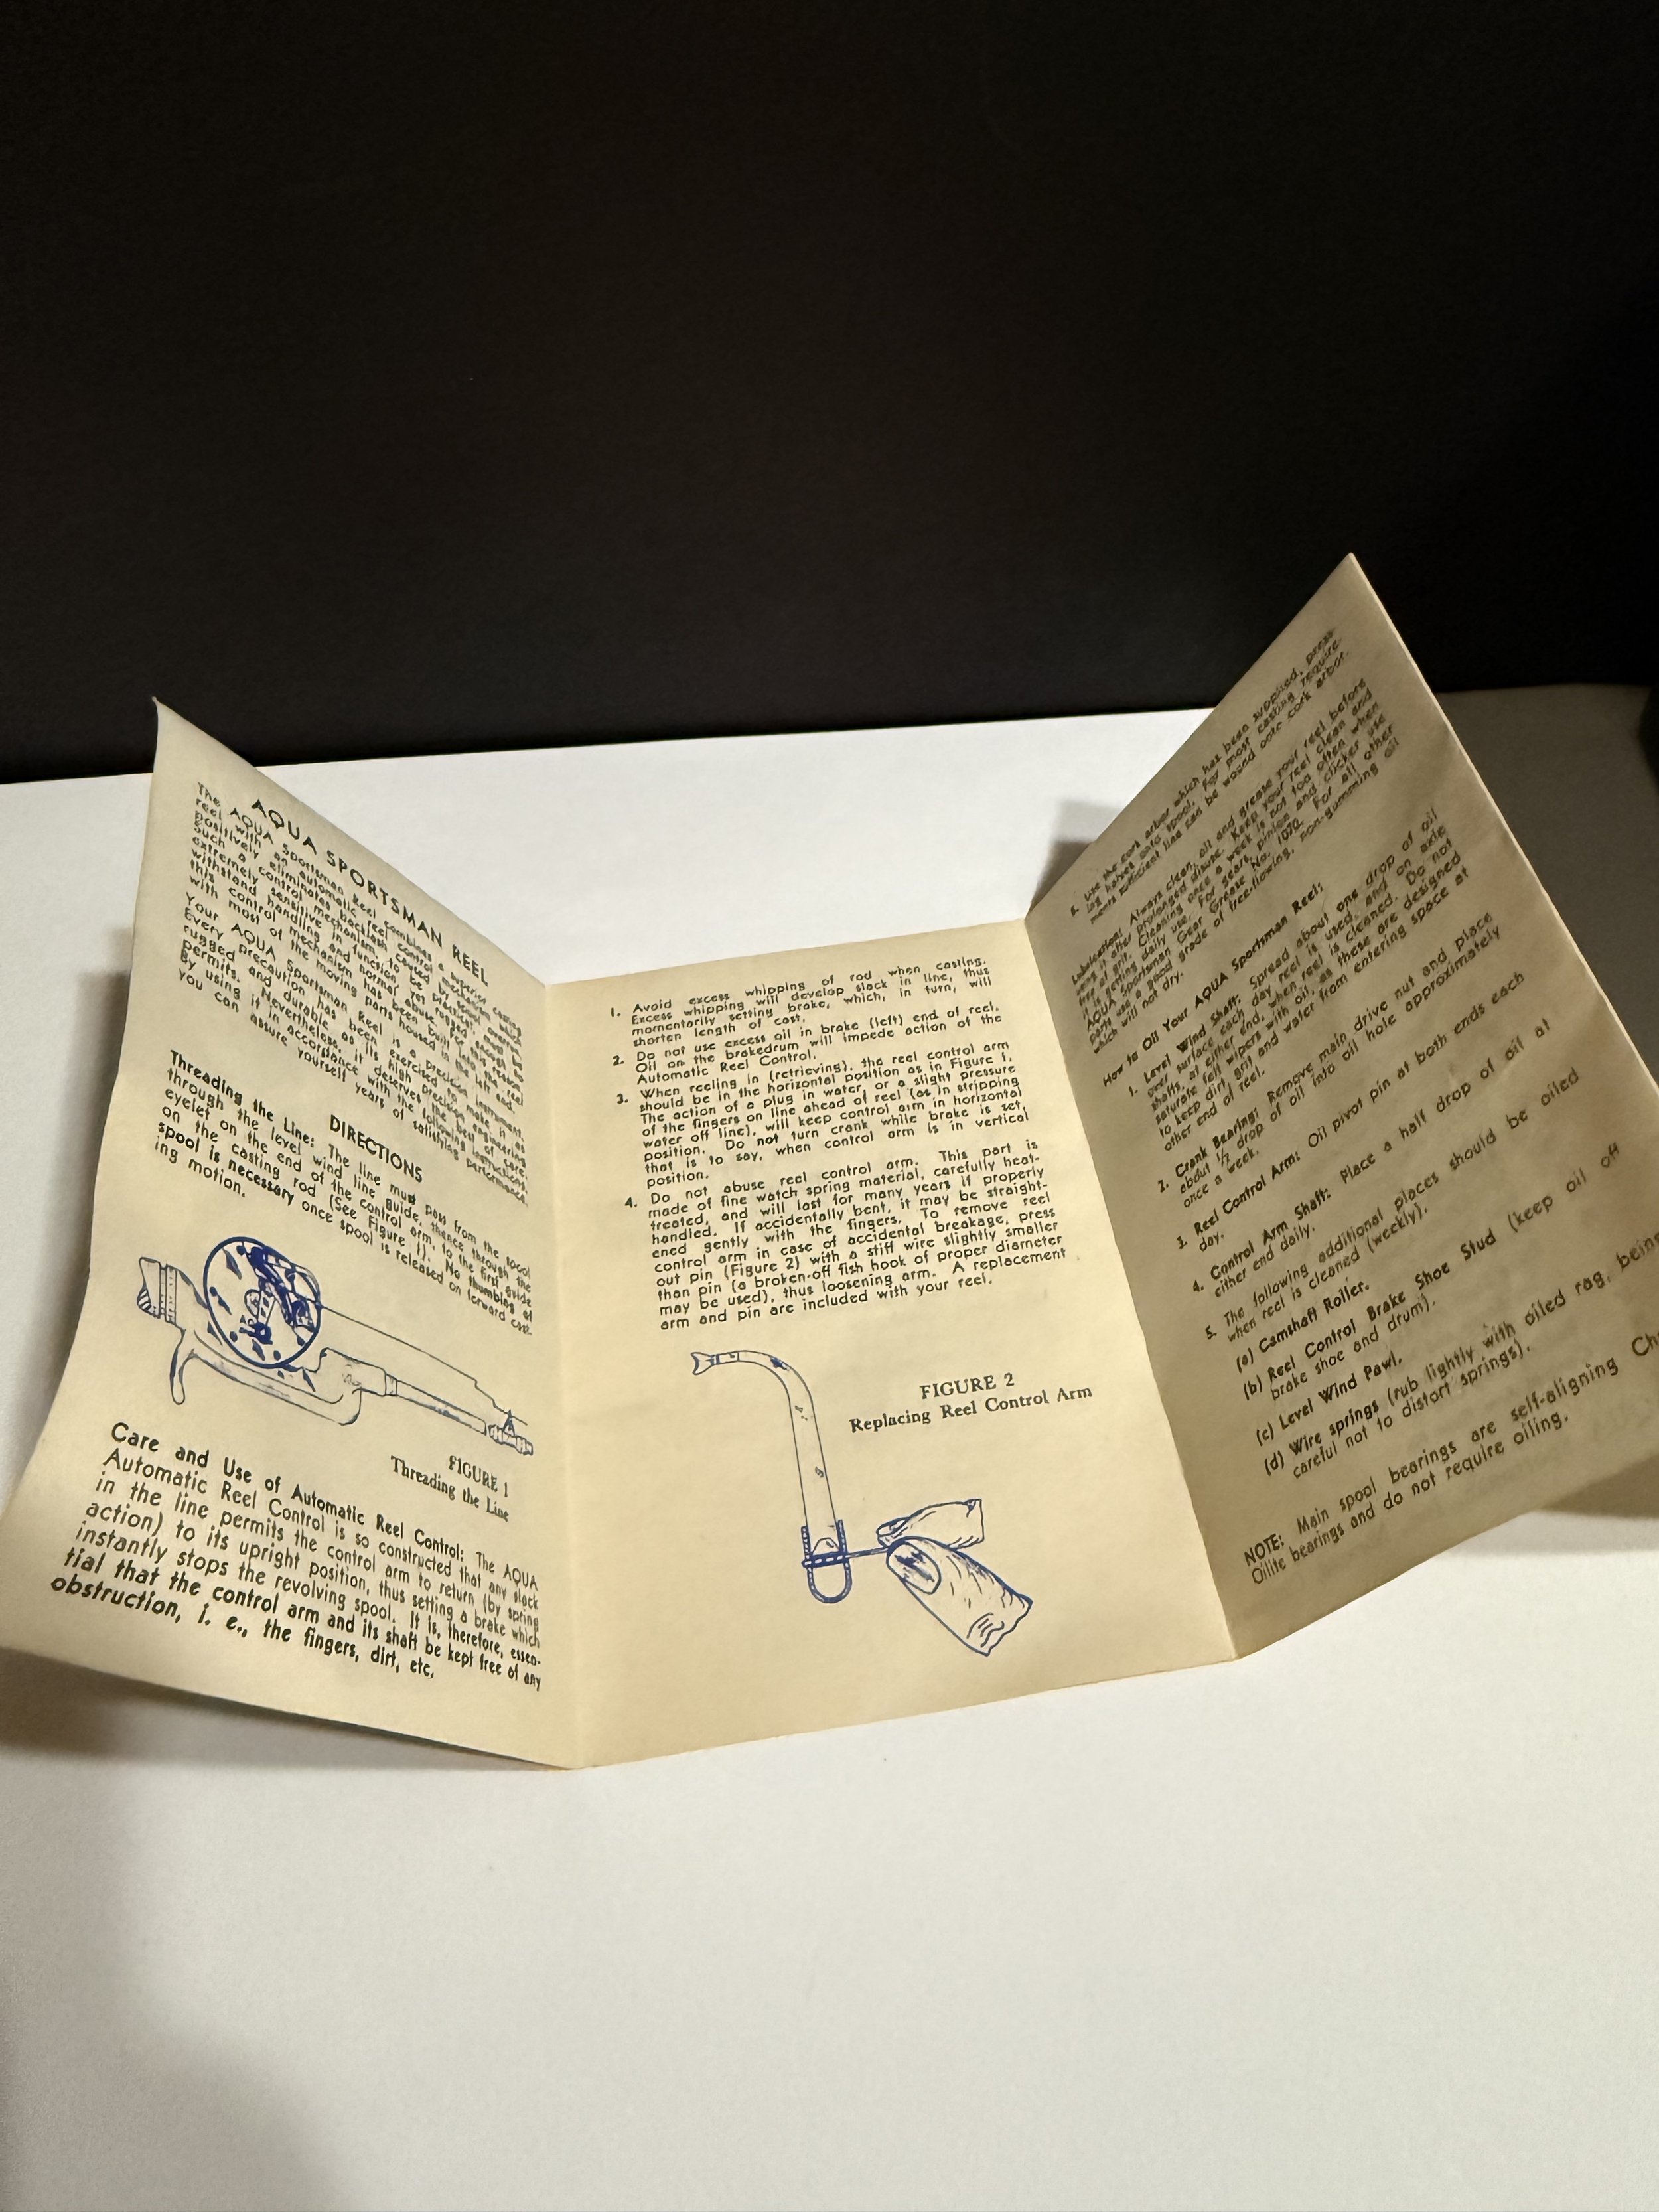 AQUA SPORTSMAN REEL
The AQUA Sportsman Reel combines a superior casting
reel with an automatic reel control mechanism which
positively eliminates backlash caused by
Such a control mechanism, to be
extremely sensitive in function, yet rugged
withstand handling and normal
this control mechanism has been built into the reel
with most of the moving parts housed in the left end.
Your AQUA Sportsman Reel is a precision instrument.
Every precaution has been exercised to make it as
rugged and durable as its high precision engineering
permits. Nevertheless, it deserves the best of care.
By using it in accordance with the following instructions,
you can assure yourself years of satisfying performance.
DIRECTIONS
Threading the Line: The line must pass from the spool
through the level wind line guide, thence through the
eyelet on the end of the control arm, to the first guide
on the casting rod (See Figure 1). No thumbing of
spool is necessary once spool is released on forward cast-
ing motion.
FIGURE 1
Threading the Line
Care and Use of Automatic Reel Control: The AQUA
Automatic Reel Control is so constructed that any slack
in the line permits the control arm to return (by spring
action) to its upright position, thus setting a brake which
instantly stops the revolving spool. It is, therefore, essen-
tial that the control arm and its shaft be kept free of any
obstruction, i. e., the fingers, dirt, etc.
1. Avoid excess whipping of rod when casting.
Excess whipping will develop slack in line, thus
momentarily setting brake, which, in turn, will
shorten length of cast.
2. Do not use excess oil in brake (left) end of reel.
Oil on the brakedrum will impede action of the
Automatic Reel Control.
3. When reeling in (retrieving), the reel control arm
should be in the horizontal position as in Figure 1.
The action of a plug in water, or a slight pressure
of the fingers on line ahead of reel (as in stripping
water off line), will keep control arm in horizontal
position. Do not turn crank while brake is set,
that is to say, when control arm is in vertical
position.
4. Do not abuse reel control arm. This part is
made of fine watch spring material, carefully heat-
treated, and will last for many years if properly
handled. If accidentally bent, it may be straight-
ened gently with the fingers. To remove reel
control arm in case of accidental breakage, press
out pin (Figure 2) with a stiff wire slightly smaller
than pin (a broken-off fish hook of proper diameter
may be used), thus loosening arm. A replacement
arm and pin are included with your reel.
FIGURE 2
Replacing Reel Control Arm
Use the cork arbor which has been supplied, press-
ing halves onto spool. For most casting require-
ments sufficient line can be wound onto cork arbor.
Lubrication: Always clean, oil and grease your reel before
and after prolonged disuse. Keep your reel clean and
free of grit. Cleaning once a week is not too often when
it is getting daily use. For gears, pinion and clicker use
AQUA Sportsman Gear Grease No. 1070. For all other
parts use a good grade of free-flowing, non-gumming oil
which will not dry.
How to Oil Your AQUA Sportsman Reel:
1. Level Wind Shaft: Spread about one drop of oil
over surface each day reel is used, and on axle
shafts, at either end, when reel is cleaned. Do not
saturate felt wipers with oil, as these are designed
to keep dirt, grit and water from entering space at
other end of reel.
2. Crank Bearing: Remove main drive nut and place
about ½ drop of oil into oil hole approximately
once a week.
3. Reel Control Arm: Oil pivot pin at both ends each
day.
4. Control Arm Shaft: Place a half drop of oil at
either end daily.
5. The following additional places should be oiled
when reel is cleaned (weekly).
(a) Camshaft Roller.
(b) Reel Control Brake Shoe Stud (keep oil off
brake shoe and drum).
(c) Level Wind Pawl.
(d) Wire springs (rub lightly with oiled rag, being
careful not to distort springs).
NOTE: Main spool bearings are self-aligning
Oilite bearings and do not require oiling.